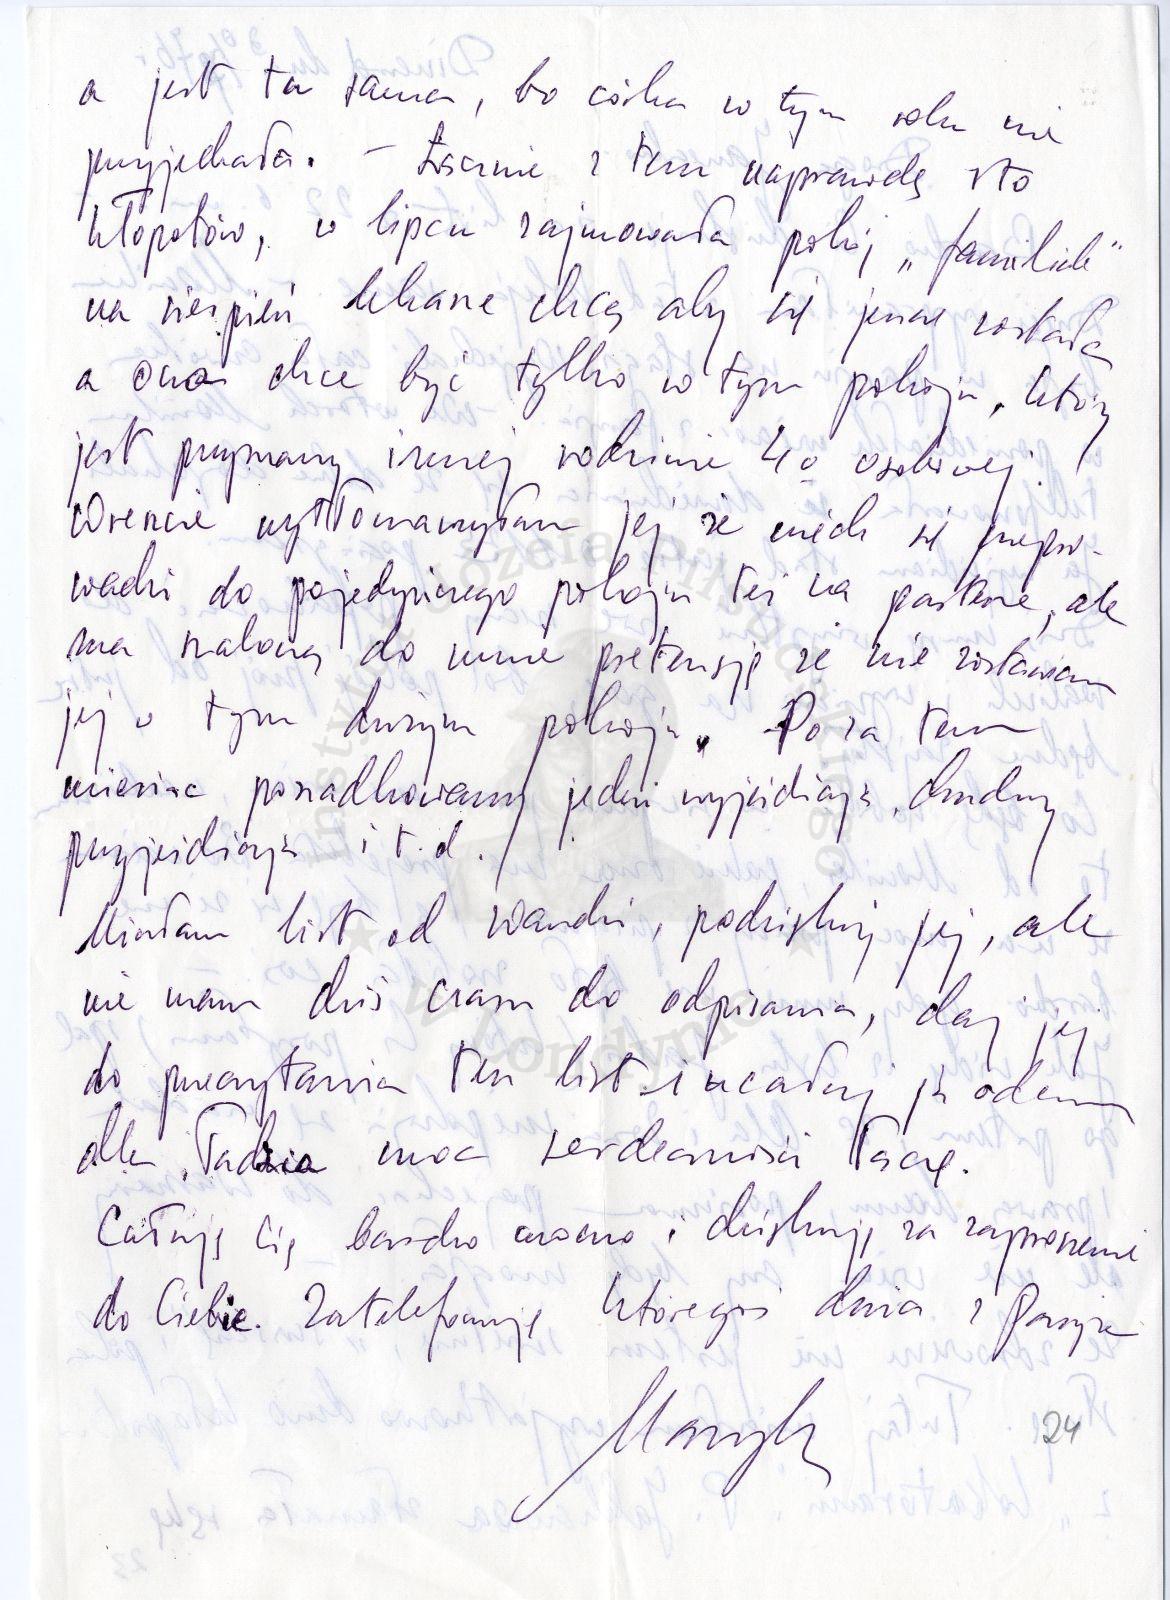 a jest ta sama, bo córka w tym roku nie
przyjechała. – Łącznie z tem naprawdę sto
kłopotów, w lipcu zajmowała pokój „familiale"
na sierpień lekarze chcą aby się jeszcze została
a ona chce być tylko w tym pokoju, który
jest przyznany innej rodzinie 4o osobowej.
Wreszcie wytłomaczyłam jej że niech się przepro-
wadzi do pojedyńczego pokoju też na parterze, ale
ma szaloną do mnie pretensję że nie zostawiam
jej w tym dużym pokoju. Poza tem
miesiąc porządkowany jedni wyjeżdżają, drudzy
przyjeżdżają i t.d.
Miałam list od Wandzi, podziękuj jej, ale
nie mam dziś czasu do odpisania, daj jej
do przeczytania ten list i ucałuj ją odemnie
dla Tadzia moc serdeczności łączę.
Całuję Cię bardzo mocno i dziękuję za zaproszenie
do Ciebie. Zatelefonuję któregoś dnia z Paryża
Marysia
24
Instytut Józefa Piłsudskiego
w Londynie